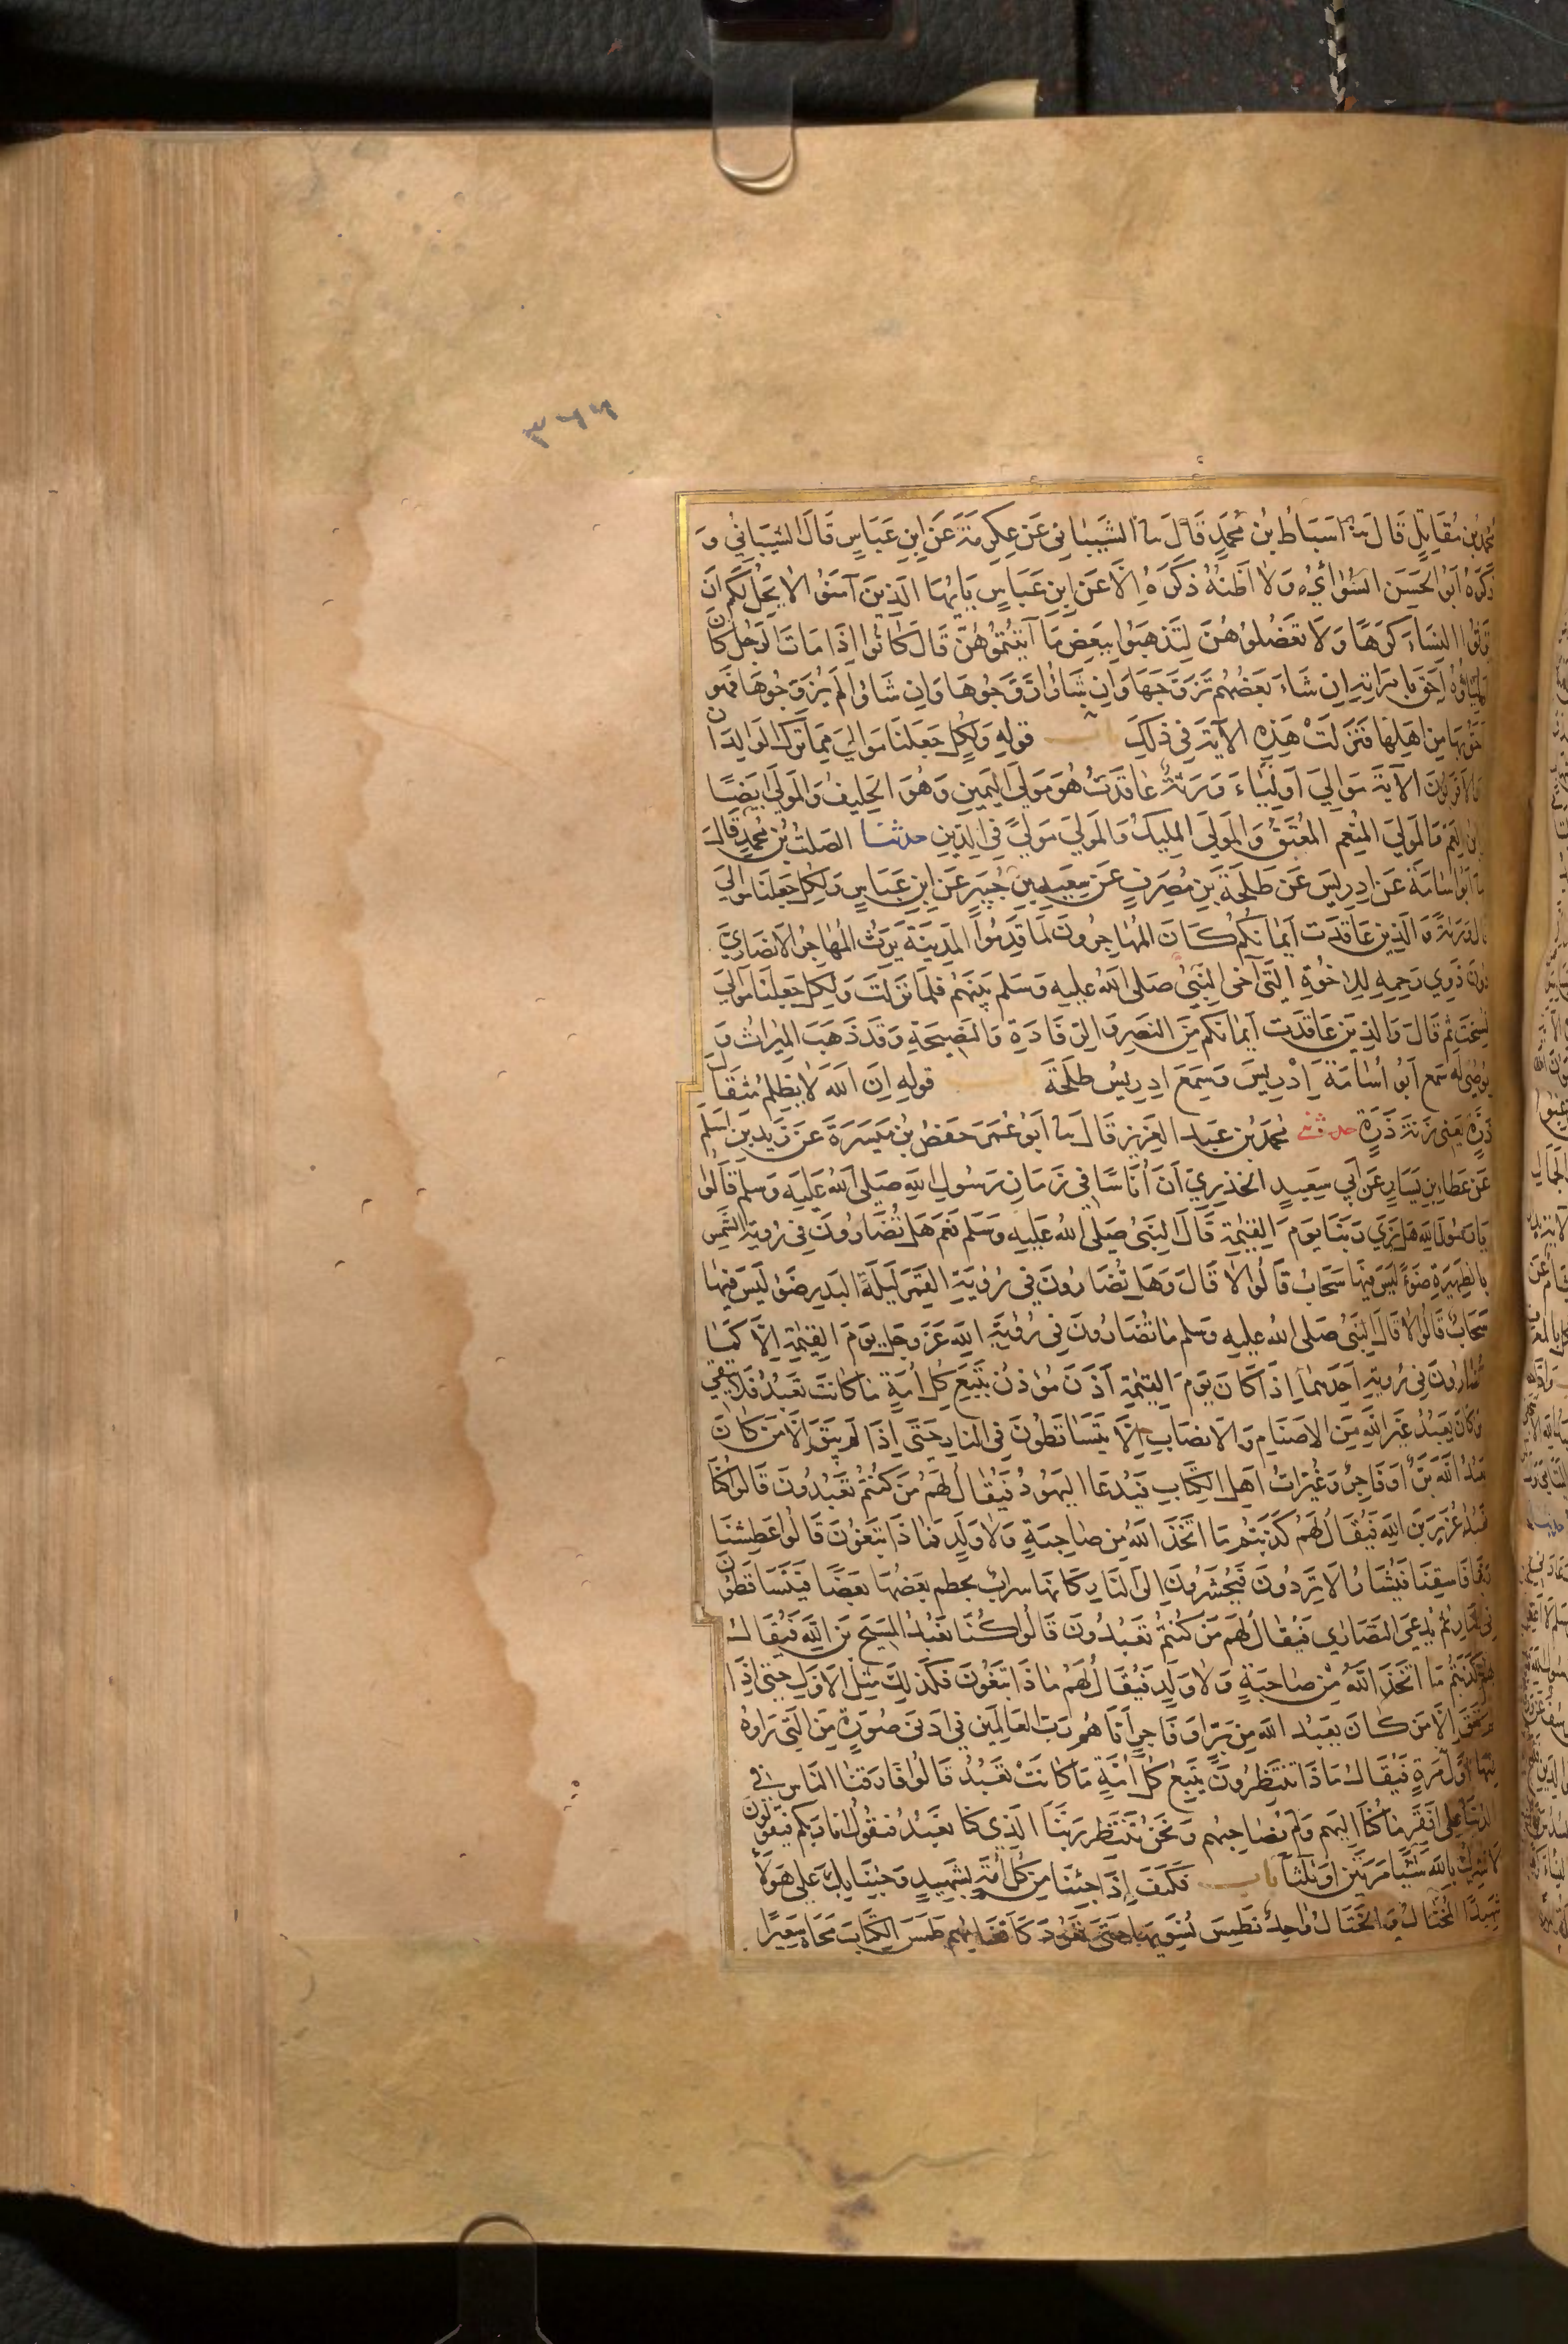 ٣٦٦
محمد بن مقاتل قال نا اسباط بن محمد قال نا الشيباني عن عكرمة عن ابن عباس قال الشيباني و
ذكره ابو الحسن السوائي ولا اظنه ذكره الا عن ابن عباس يايها الذين آمنوا لا يحل لكم ان
ترثوا النساء كرها ولا تعضلوهن لتذهبوا ببعض ما آتيتموهن قال كانوا اذا مات الرجل كان
اولياؤه احق بامراته ان شاء بعضهم تزوجها وان شاؤا زوجوها وان شاؤا لم يزوجوها فهم
احق بها من اهلها فنزلت هذه الآية في ذلك باب قوله ولكل جعلنا موالي مما ترك الوالدان
والاقربون الآية موالي اولياء ورثة عاقدت هو مولى اليمين وهو الحليف والمولى ايضا
ابن العم والمولى المنعم المعتق والمولى المليك والمولى مولى في الدين حدثنا الصلت بن محمد قال
نا ابو اسامة عن ادريس عن طلحة بن مصرف عن سعيد بن جبير عن ابن عباس ولكل جعلنا موالي
قال ورثة والذين عاقدت ايمانكم كان المهاجرون لما قدموا المدينة يرث المهاجر الانصاري
دون ذوي رحمه للاخوة التي آخى النبي صلى الله عليه وسلم بينهم فلما نزلت ولكل جعلنا موالي
نسخت ثم قال والذين عاقدت ايمانكم من النصر والرفادة والنصيحة وقد ذهب الميراث و
يوصى له سمع ابو اسامة ادريس وسمع ادريس طلحة قوله ان الله لا يظلم مثقال
ذرة يعني زنة ذرة حدثني محمد بن عبد العزيز قال نا ابو عمر حفص بن ميسرة عن زيد بن اسلم
عن عطاء بن يسار عن ابي سعيد الخدري ان اناسا في زمان رسول الله صلى الله عليه وسلم قالوا
يا رسول الله هل نري ربنا يوم القيمة قال النبي صلى الله عليه وسلم نعم هل تضارون في رؤية الشمس
بالظهيرة ضوء ليس فيها سحاب قالوا لا قال وهل تضارون في رؤية القمر ليلة البدر ضوء ليس فيها
سحاب قالوا لا قال النبي صلى الله عليه وسلم ما تضارون في رؤية الله عز وجل يوم القيمة الا كما
تضارون في رؤية احدهما اذا كان يوم القيمة اذن موذن يتبع كل امة ما كانت تعبد فلا يبقى
من كان يعبد غير الله من الاصنام والانصاب الا يتساقطون في النار حتى اذا لم يبق الا من كان
يعبد الله بر او فاجر وغبرات اهل الكتاب فيدعا اليهود فيقال لهم من كنتم تعبدون قالوا كنا
نعبد عزير بن الله فيقال لهم كذبتم ما اتخذ الله من صاحبة ولا ولد فماذا تبغون قالوا عطشنا
ربنا فاسقنا فيشار الا تردون فيحشرون الى النار كانها سراب يحطم بعضها بعضا فيتساقطون
في النار ثم يدعى النصارى فيقال لهم من كنتم تعبدون قالوا كنا نعبد المسيح بن الله فيقال
لهم كذبتم ما اتخذ الله من صاحبة ولا ولد فيقال لهم ما ذا تبغون فكذلك مثل الاول حتى اذا
لم يبق الا من كان يعبد الله من بر او فاجر اتاهم رب العالمين في ادنى صورة من التي راوه
فيها اول مرة فيقال ماذا تنتظرون يتبع كل امة ما كانت تعبد قالوا فارقنا الناس في
الدنيا على افقر ما كنا اليهم ولم نصاحبهم ونحن ننتظر ربنا الذي كنا نعبد فيقول انا ربكم فيقولون
لا نشرك بالله شيئا مرتين او ثلثا باب فكيف اذا جئنا من كل امة بشهيد وجئنا بك على هؤلاء
شهيدا المختال والختال واحد نطمس نسويها حتى تعود كاقفايهم طمس الكتاب محاه سعيرا